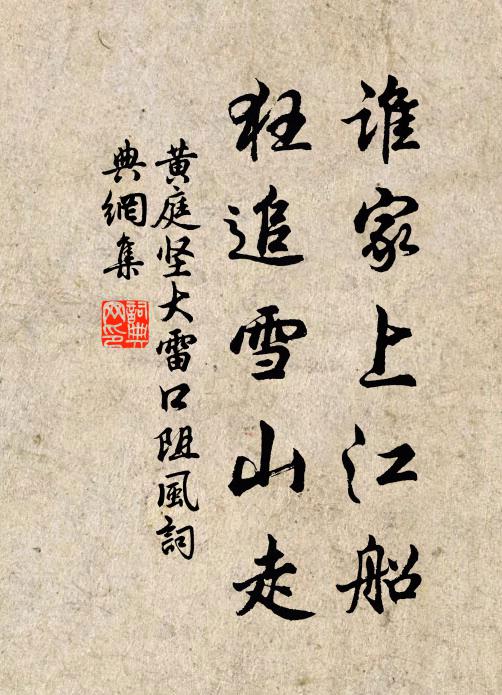 谁家上江船
狂追雪山走
黄庭坚大雷口阻風詞
典網集
詞典
网印